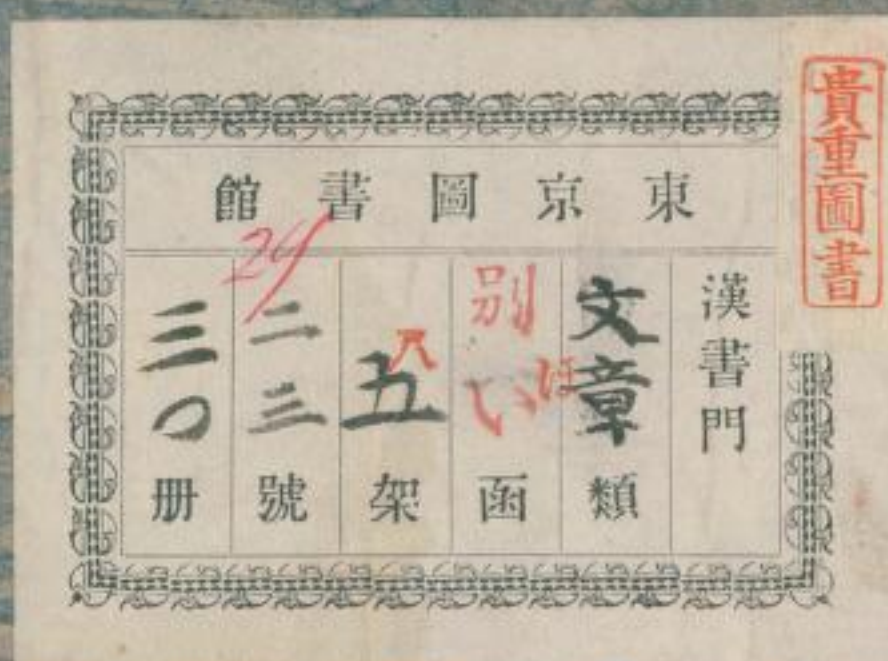 貴重圖書
東京圖書館
漢書門
文章類
別い ほ函
八五架
24
二三號
三〇册